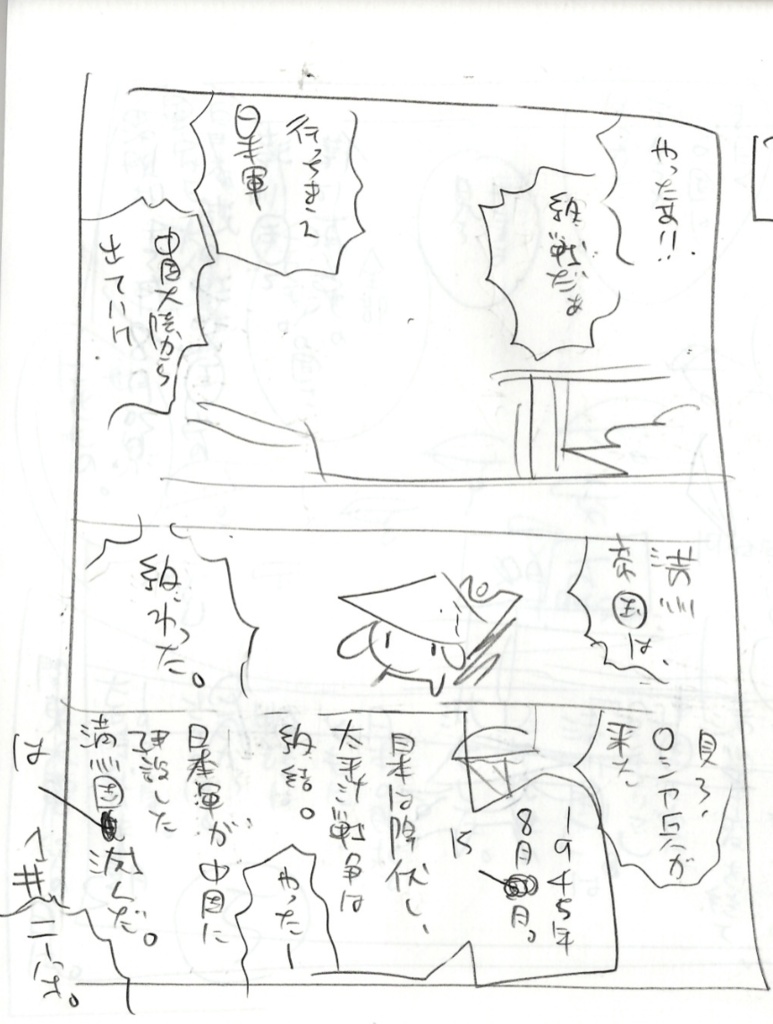 やったあ!!
終戦だあ
行っちまえ
日本軍
中国大陸から
出ていけ
満州
帝国は、
終わった。
見ろ、
ロシア兵が
来た
1945年
8月15日。
日本は降伏し、
太平洋戦争は
終結。
やったー
日本軍が中国に
建設した
満州国は滅んだ。